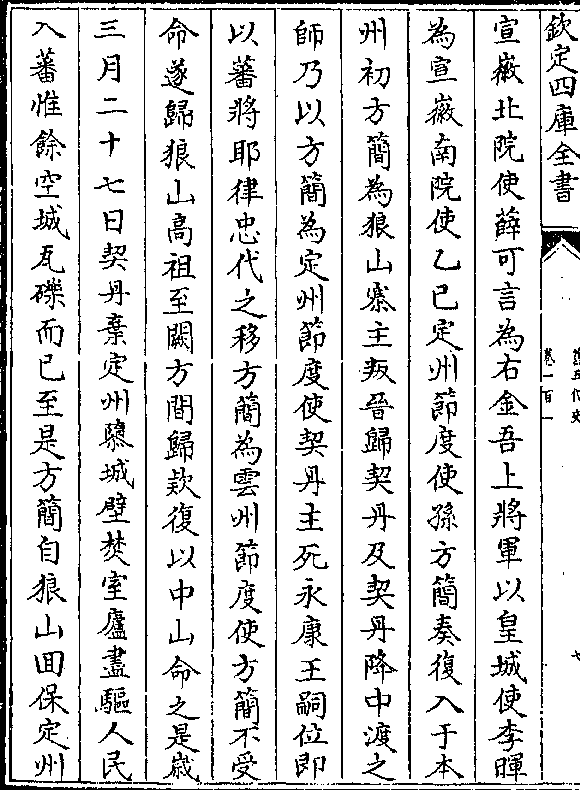 欽定四庫全書
卷一百一
宣徽北院使薛可言為右金吾上將軍以皇城使李暉
為宣徽南院使乙巳定州節度使孫方簡奏復入于本
州初方簡為狼山寨主叛晉歸契丹及契丹降中渡之
師乃以方簡為定州節度使契丹主死永康王嗣位即
以蕃將耶律忠代之移方簡為雲州節度使方簡不受
命遂歸狼山高祖至闕方簡歸欵復以中山命之是歲
三月二十七日契丹棄定州隳城壁焚室廬盡驅人民
入蕃惟餘空城瓦礫而已至是方簡自狼山回保定州